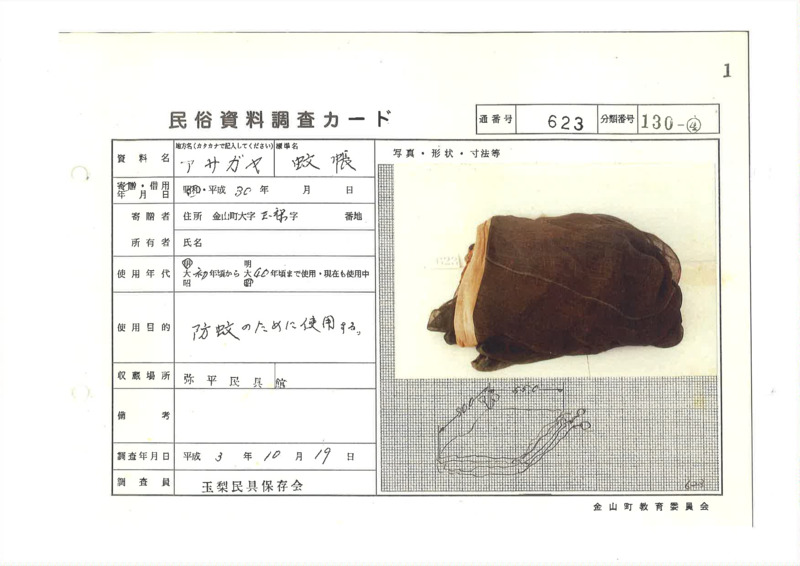 1
民俗資料調査カード
通番号 623 分類番号 130-④
資料名 地方名(カタカナで記入してください) アサガヤ 標準名 蚊帳
写真・形状・寸法等
寄贈・借用年月日 昭和・平成 30年 月 日
寄贈者 住所 金山町大字玉梨字 番地
所有者 氏名
使用年代 明大昭 初年頃から 明大昭 40年頃まで使用・現在も使用中
使用目的 防蚊のために使用する。
収蔵場所 弥平民具館
備考
調査年月日 平成 3年 10月 19日
調査員 玉梨民具保存会
90.0
55.0
623
金山町教育委員会